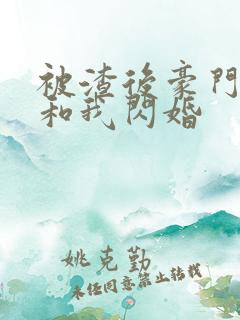 被渣后豪门
和我闪婚
姚克勤
未经同意禁止转载